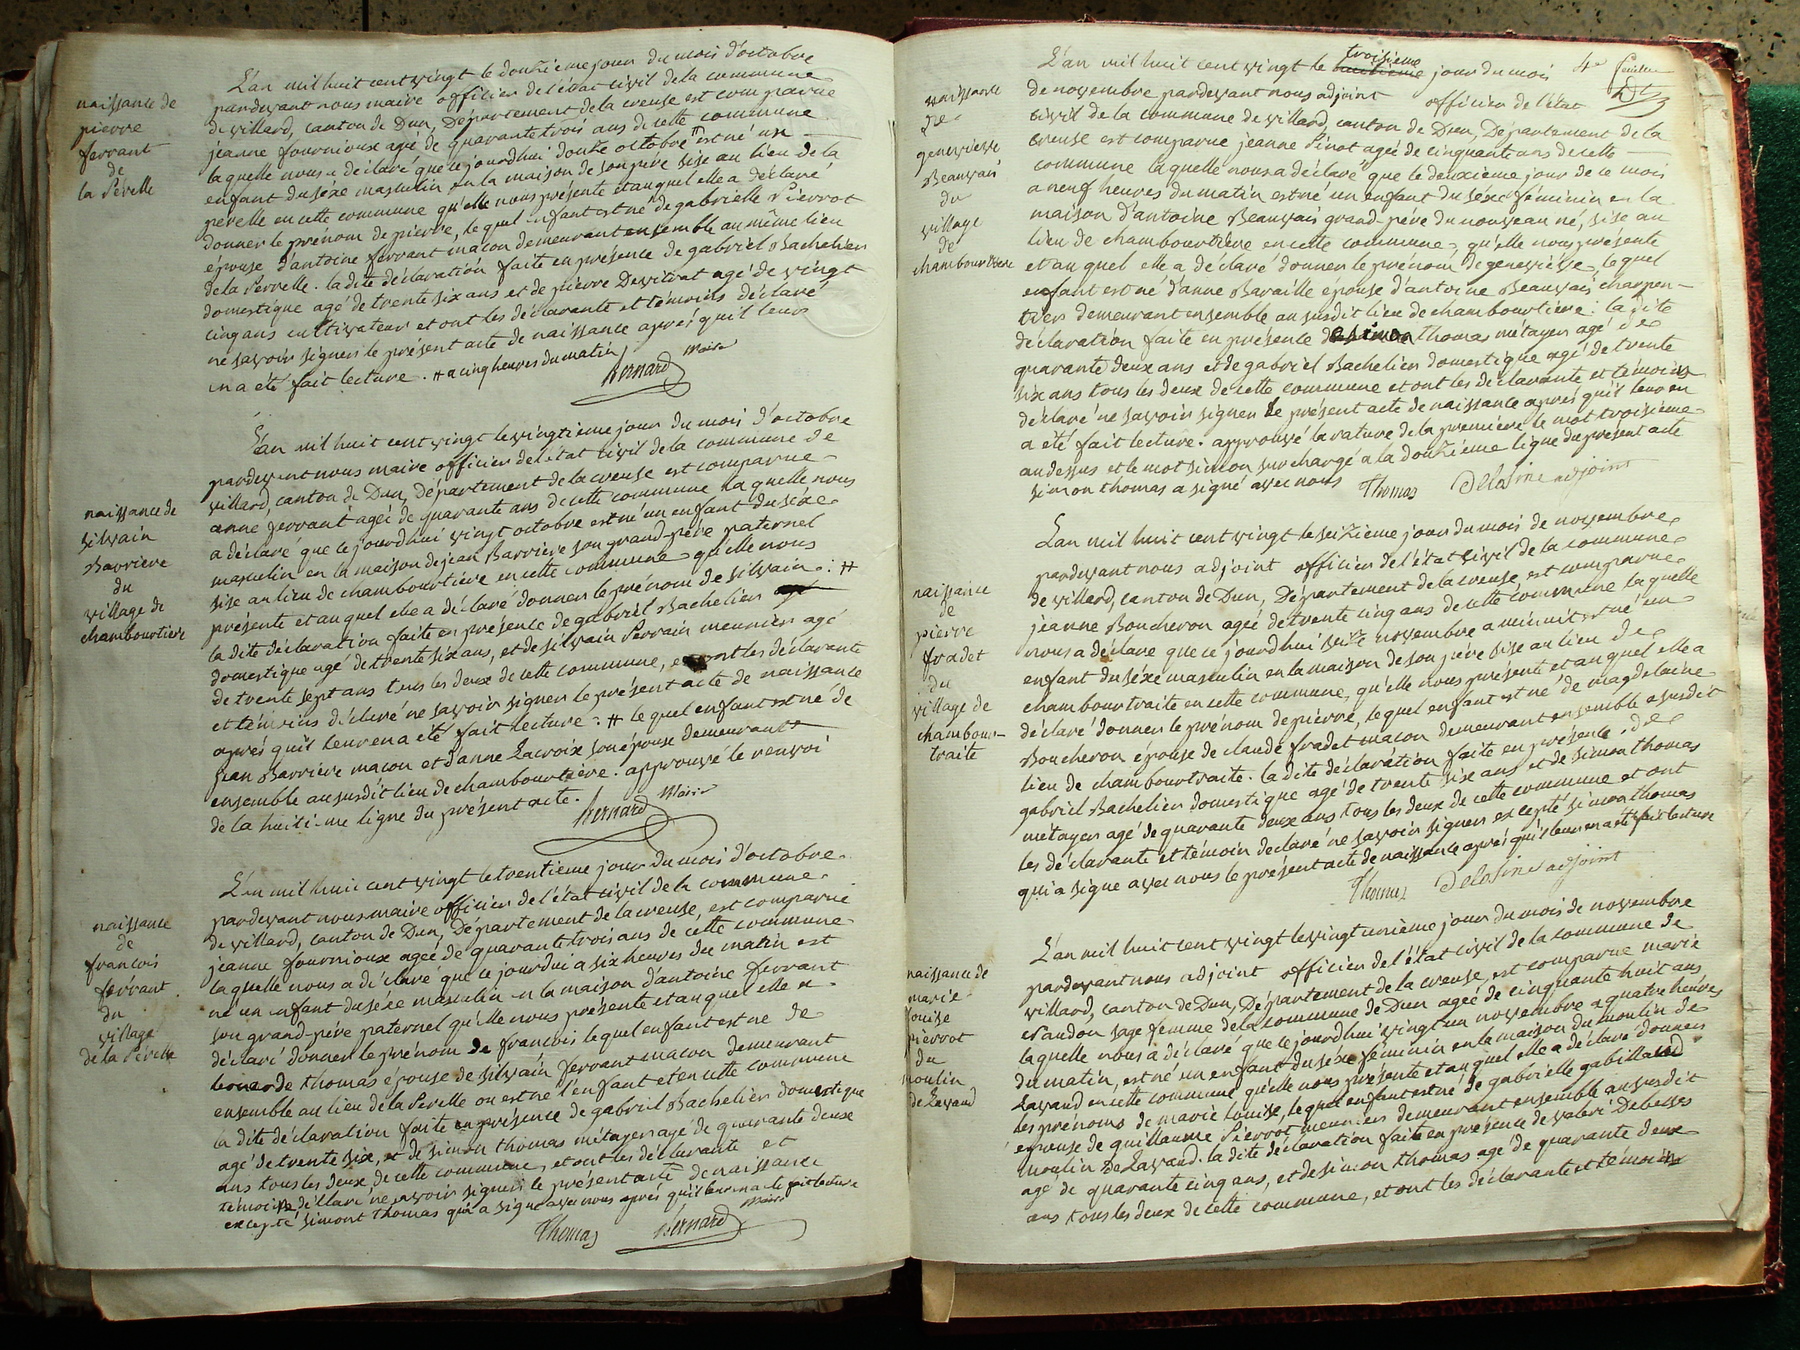 naissance de
pierre
ferrant
de
la Pérelle
L'an mil huit cent vingt le douzieme jour du mois d'octobre
pardevant nous maire officier de l'état civil de la commune
de villard, canton de Dun, Département de la creuse est comparue
jeanne fournioux agée de quarante trois ans de cette commune
laquelle nous a déclaré que cejourdhui douze octobre # est né un
enfant du séxe masculin en la maison de son père sise au lieu de la
pérelle en cette commune qu'elle nous présente et auquel elle a déclaré
donner le prénom de pierre, lequel enfant est né de gabrielle Pierrot
épouse d'antoine ferrant maçon demeurant ensemble au même lieu
de la Perrelle. la dite déclaration faite en présence de gabriel Bachelier
domestique agé de trente six ans et de pierre Devitrat agé de vingt
cinq ans cultivateur et ont les déclarante et témoins déclaré
ne savoir signer le présent acte de naissance après qu'il leurs
en a été fait lecture. # a cinq heures du matin
Bernard Maire
naissance de
silvain
Barriere
du
village de
chambourtiere
L'an mil huit cent vingt le vingtieme jour du mois d'octobre
pardevant nous maire officier de l'état civil de la commune de
villard, canton de Dun, Département de la creuse est comparue
anne ferrant agée de quarante ans de cette commune laquelle nous
a déclaré que cejourdhui vingt octobre est né un enfant du séxe
masculin en la maison de jean Barriere son grand-père paternel
sise au lieu de chambourtiere en cette commune qu'elle nous
présente et auquel elle a déclaré donner le prénom de silvain : #
la dite déclaration faite en présence de gabriel Bachelier
domestique agé de trente six ans, et de silvain Perrain meunier agé
de trente sept ans tous les deux de cette commune, et ont les déclarante
et témoins déclaré ne savoir signer le présent acte de naissance
après qu'il leur en a été fait lecture : # lequel enfant est né de
jean Barriere macon et d'anne Lacroix son épouse demeurant
ensemble au susdit lieu de chambourtiere. approuvé le renvoi
de la huitieme ligne du présent acte.
Bernard Maire
naissance
de
francois
ferrant
du
village
de la Pérelle
L'an mil huit cent vingt le trentieme jour du mois d'octobre
pardevant nous maire officier de l'état civil de la commune
de villard, canton de Dun, Département de la creuse, est comparue
jeanne fournioux agée de quarante trois ans de cette commune
laquelle nous a déclaré que ce jourdui a six heures du matin est
né un enfant du séxe masculin en la maison d'antoine ferrant
son grand-père paternel qu'elle nous présente et auquel elle a
déclaré donner le prénom de francois lequel enfant est né de
leonarde thomas épouse de silvain ferrant macon demeurant
ensemble au lieu de la Perelle ou est né l'enfant et en cette commune
la dite déclaration faite en présence de gabriel Bachelier domestique
agé de trente six, et de simon thomas métayer agé de quarante deux
ans tous les deux de cette commune, et ont les déclarante et
témoins déclaré ne savoir signer le présent acte de naissance
excepté simont thomas qui a signé avec nous après qu'il leur en a été fait lecture
Thomas Bernard Maire
4e feuillet
naissance
de
genevieve
Beauvais
du
village
de
chambourtiere
troisieme
L'an mil huit cent vingt le jour du mois
de novembre pardevant nous adjoint officier de l'état
civil de la commune de villard, canton de Dun, Département de la
creuse est comparue jeanne Pinot agé de cinquante ans de cette
commune laquelle nous a déclaré que le deuxieme jour de ce mois
a neuf heures du matin est né un enfant du séxe féminin en la
maison d'antoine Beauvais grand-père du nouveau né, sise au
lieu de chambourtiere en cette commune, qu'elle nous présente
et au quel elle a déclaré donner le prénom de genevieve, le quel
enfant est né d'anne Baraille epouse d'antoine Beauvais charpen-
tier demeurant ensemble au susdit lieu de chambourtiere : la dite
déclaration faite en présence de simon thomas métayer agé de
quarante deux ans et de gabriel Bachelier domestique agé de trente
six ans tous les deux de cette commune et ont les déclarante et témoins
déclaré ne savoir signer le présent acte de naissance après qu'il leur en
a été fait lecture. approuvé la rature de la premiere le mot troisieme
au dessus et le mot simon surchargé a la douzieme ligne du présent acte
simon thomas a signé avec nous Thomas Delasine adjoint
naissance
de
pierre
fradet
du
village de
chambour-
traite
L'an mil huit cent vingt le seizieme jour du mois de novembre
pardevant nous adjoint officier de l'état civil de la commune
de villard, canton de Dun, Département de la creuse, est comparue
jeanne Boucheron agée de trente cinq ans de cette commune laquelle
nous a déclaré que ce jourdhui seize novembre a minuit est né un
enfant du séxe masculin en la maison de son père sise au lieu de
chambourtraite en cette commune, qu'elle nous présente et auquel elle a
déclaré donner le prénom de pierre, lequel enfant est né de magdelaine
Boucheron épouse de claude fradet macon demeurant ensemble a susdit
lieu de chambourtraite. la dite déclaration faite en présence de
gabriel Bachelier domestique agé de trente six ans et de simon thomas
métayer agé de quarante deux ans tous les deux de cette commune et ont
les déclarante et témoin déclaré ne savoir signer excepté simon thomas
qui a signé avec nous le présent acte de naissance après qu'il leur en a été fait lecture
Thomas Delasine adjoint
naissance de
marie
louise
pierrot
du
moulin
de Lavaud
L'an mil huit cent vingt le vingt unieme jour du mois de novembre
pardevant nous adjoint officier de l'état civil de la commune de
villard, canton de Dun, Département de la creuse, est comparue marie
Naudon sage femme de la commune de Dun agée de cinquante huit ans
laquelle nous a déclaré que ce jourdhui vingt un novembre a quatre heures
du matin, est né un enfant du séxe féminin en la maison du moulin de
Lavaud en cette commune qu'elle nous présente et auquel elle a déclaré donner
les prénoms de marie louise, lequel enfant est né de gabrielle gabillaud
épouse de guillaume Pierrot, meunier demeurant ensemble au susdit
moulin de Lavaud. la dite déclaration faite en présence de valéri Debesses
agé de quarante cinq ans, et de simon thomas agé de quarante deux
ans tous les deux de cette commune, et ont les déclarante et témoins